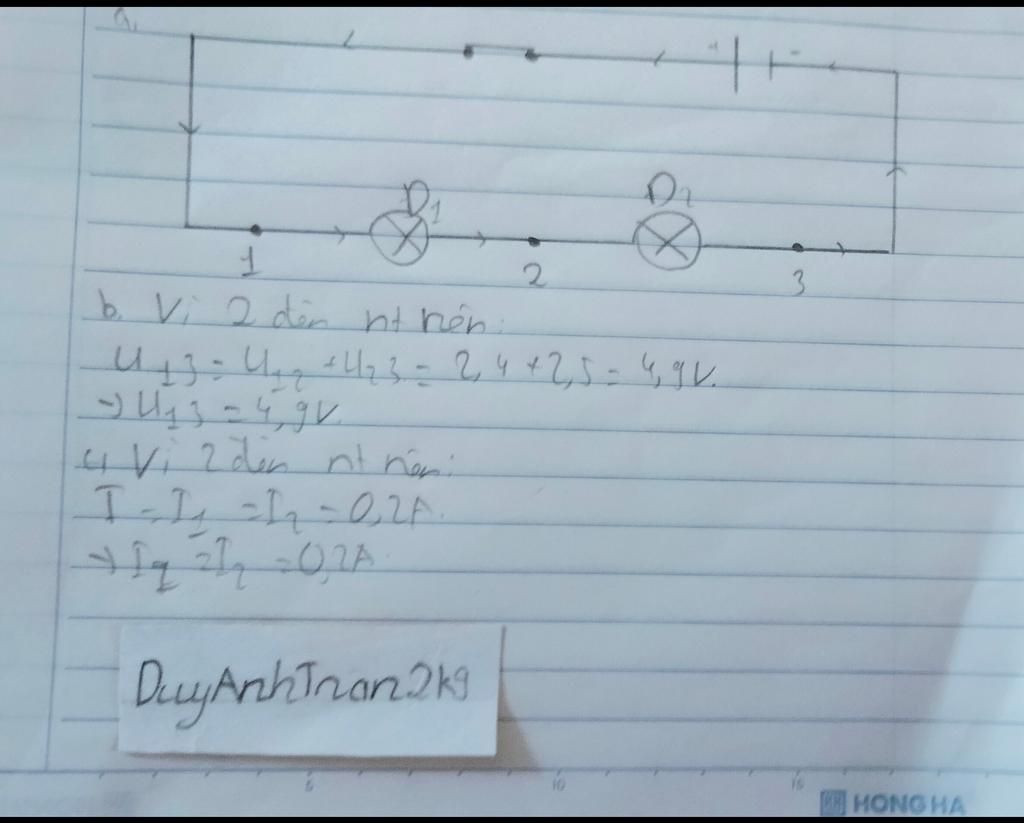 a.
+ -
Đ1 Đ2
1 2 3
b. Vì 2 đèn nt nên:
U13 = U12 + U23 = 2,4 + 2,5 = 4,9V.
→ U13 = 4,9V.
c, Vì 2 đèn nt nên:
I = I1 = I2 = 0,2A.
→ I1 = I2 = 0,2A.
DuyAnhTran2k9
5 10 15
HONG HA